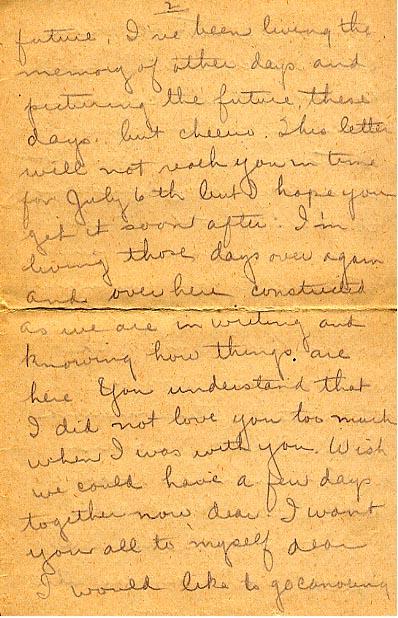 2
future. I've been living the
memory of other days and
picturing the future, these
days. but cheerio. This letter
will not reach you in time
for July 6th but I hope you
get it soon after. I'm
living those days over again
and over here constructed
as we are in writing and
knowing how things are
here. You understand that
I did not love you too much
when I was with you. Wish
we could have a few days
together now, dear. I want
you all to myself dear
I would like to go canoeing